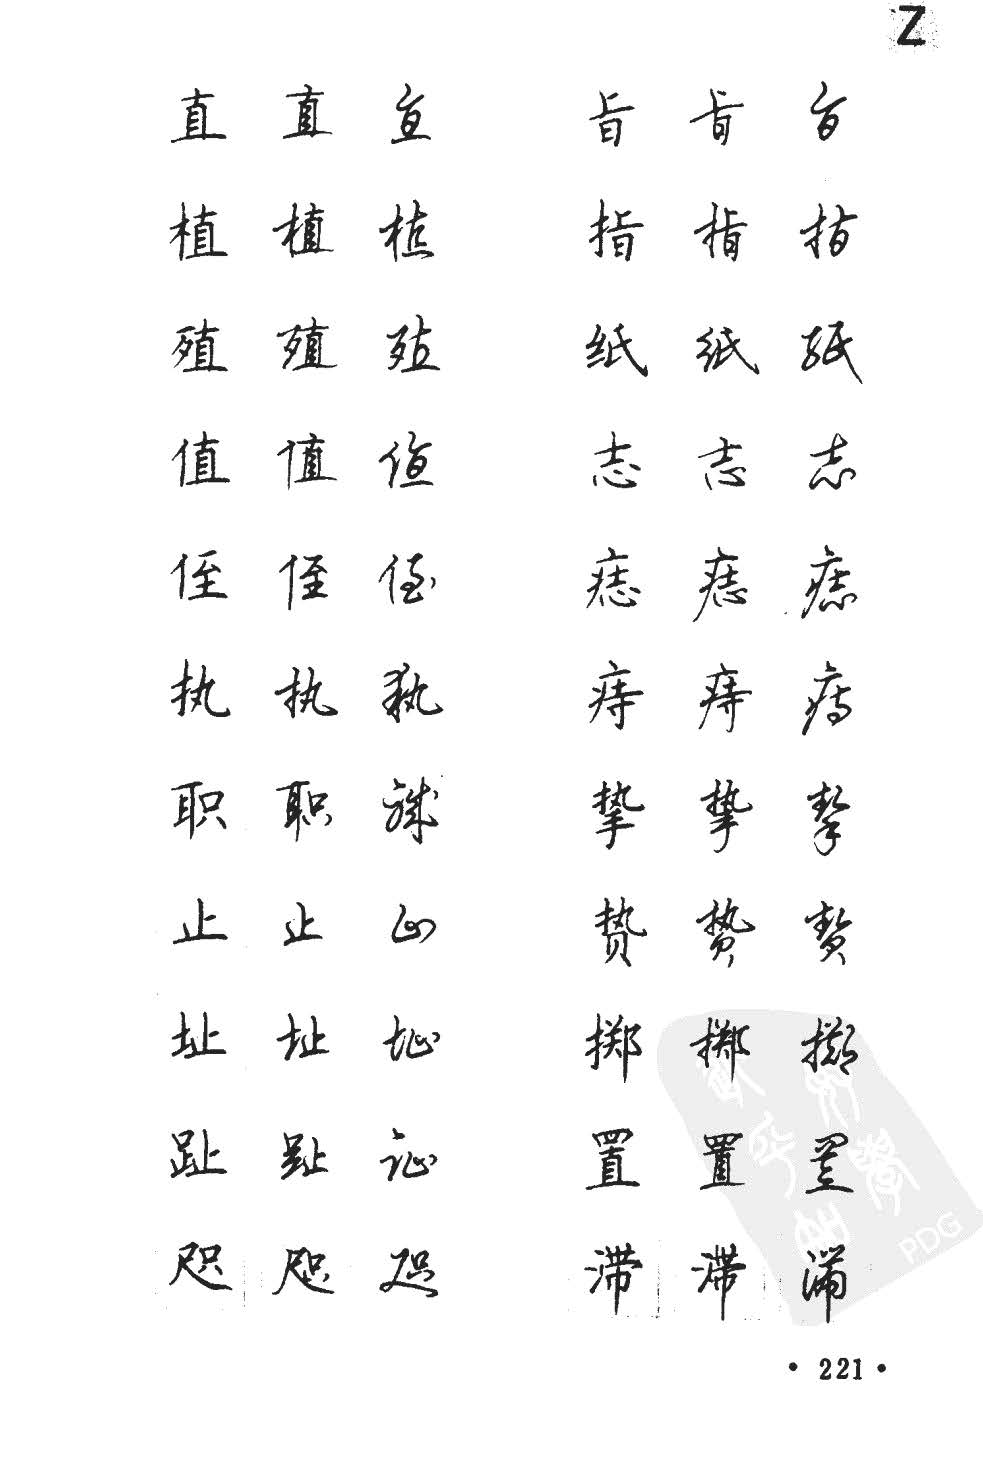 Z
直 直 直 旨 旨 旨
植 植 植 指 指 指
殖 殖 殖 纸 纸 纸
值 值 值 志 志 志
侄 侄 侄 痣 痣 痣
执 执 执 痔 痔 痔
职 职 职 挚 挚 挚
止 止 止 贽 贽 贽
址 址 址 掷 掷 掷
趾 趾 趾 置 置 置
咫 咫 咫 滞 滞 滞
PDG
• 221 •